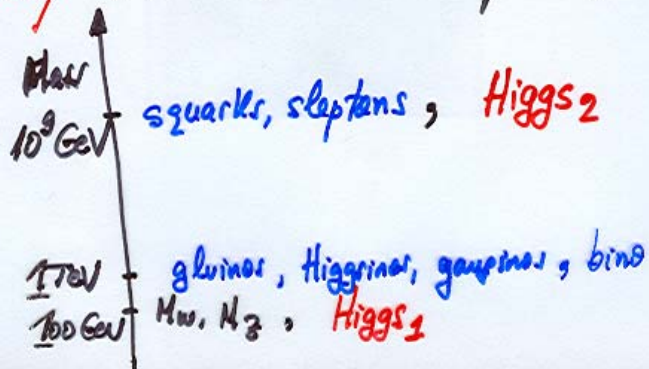 Mass
10⁹ GeV squarks, sleptons, Higgs₂
1 TeV gluinos, Higgsinos, gauginos, bino
100 GeV Mw, Mz, Higgs₁